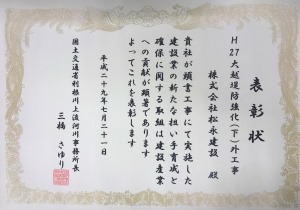 表彰状
H27大越堤防強化(下)外工事
株式会社松永建設 殿
貴社が頭書工事にて実施した
建設業の新たな担い手育成と
確保に関する取組は建設産業
への貢献が顕著であります
よってこれを表彰します
平成二十九年七月二十一日
国土交通省利根川上流河川事務所長
三橋 さゆり